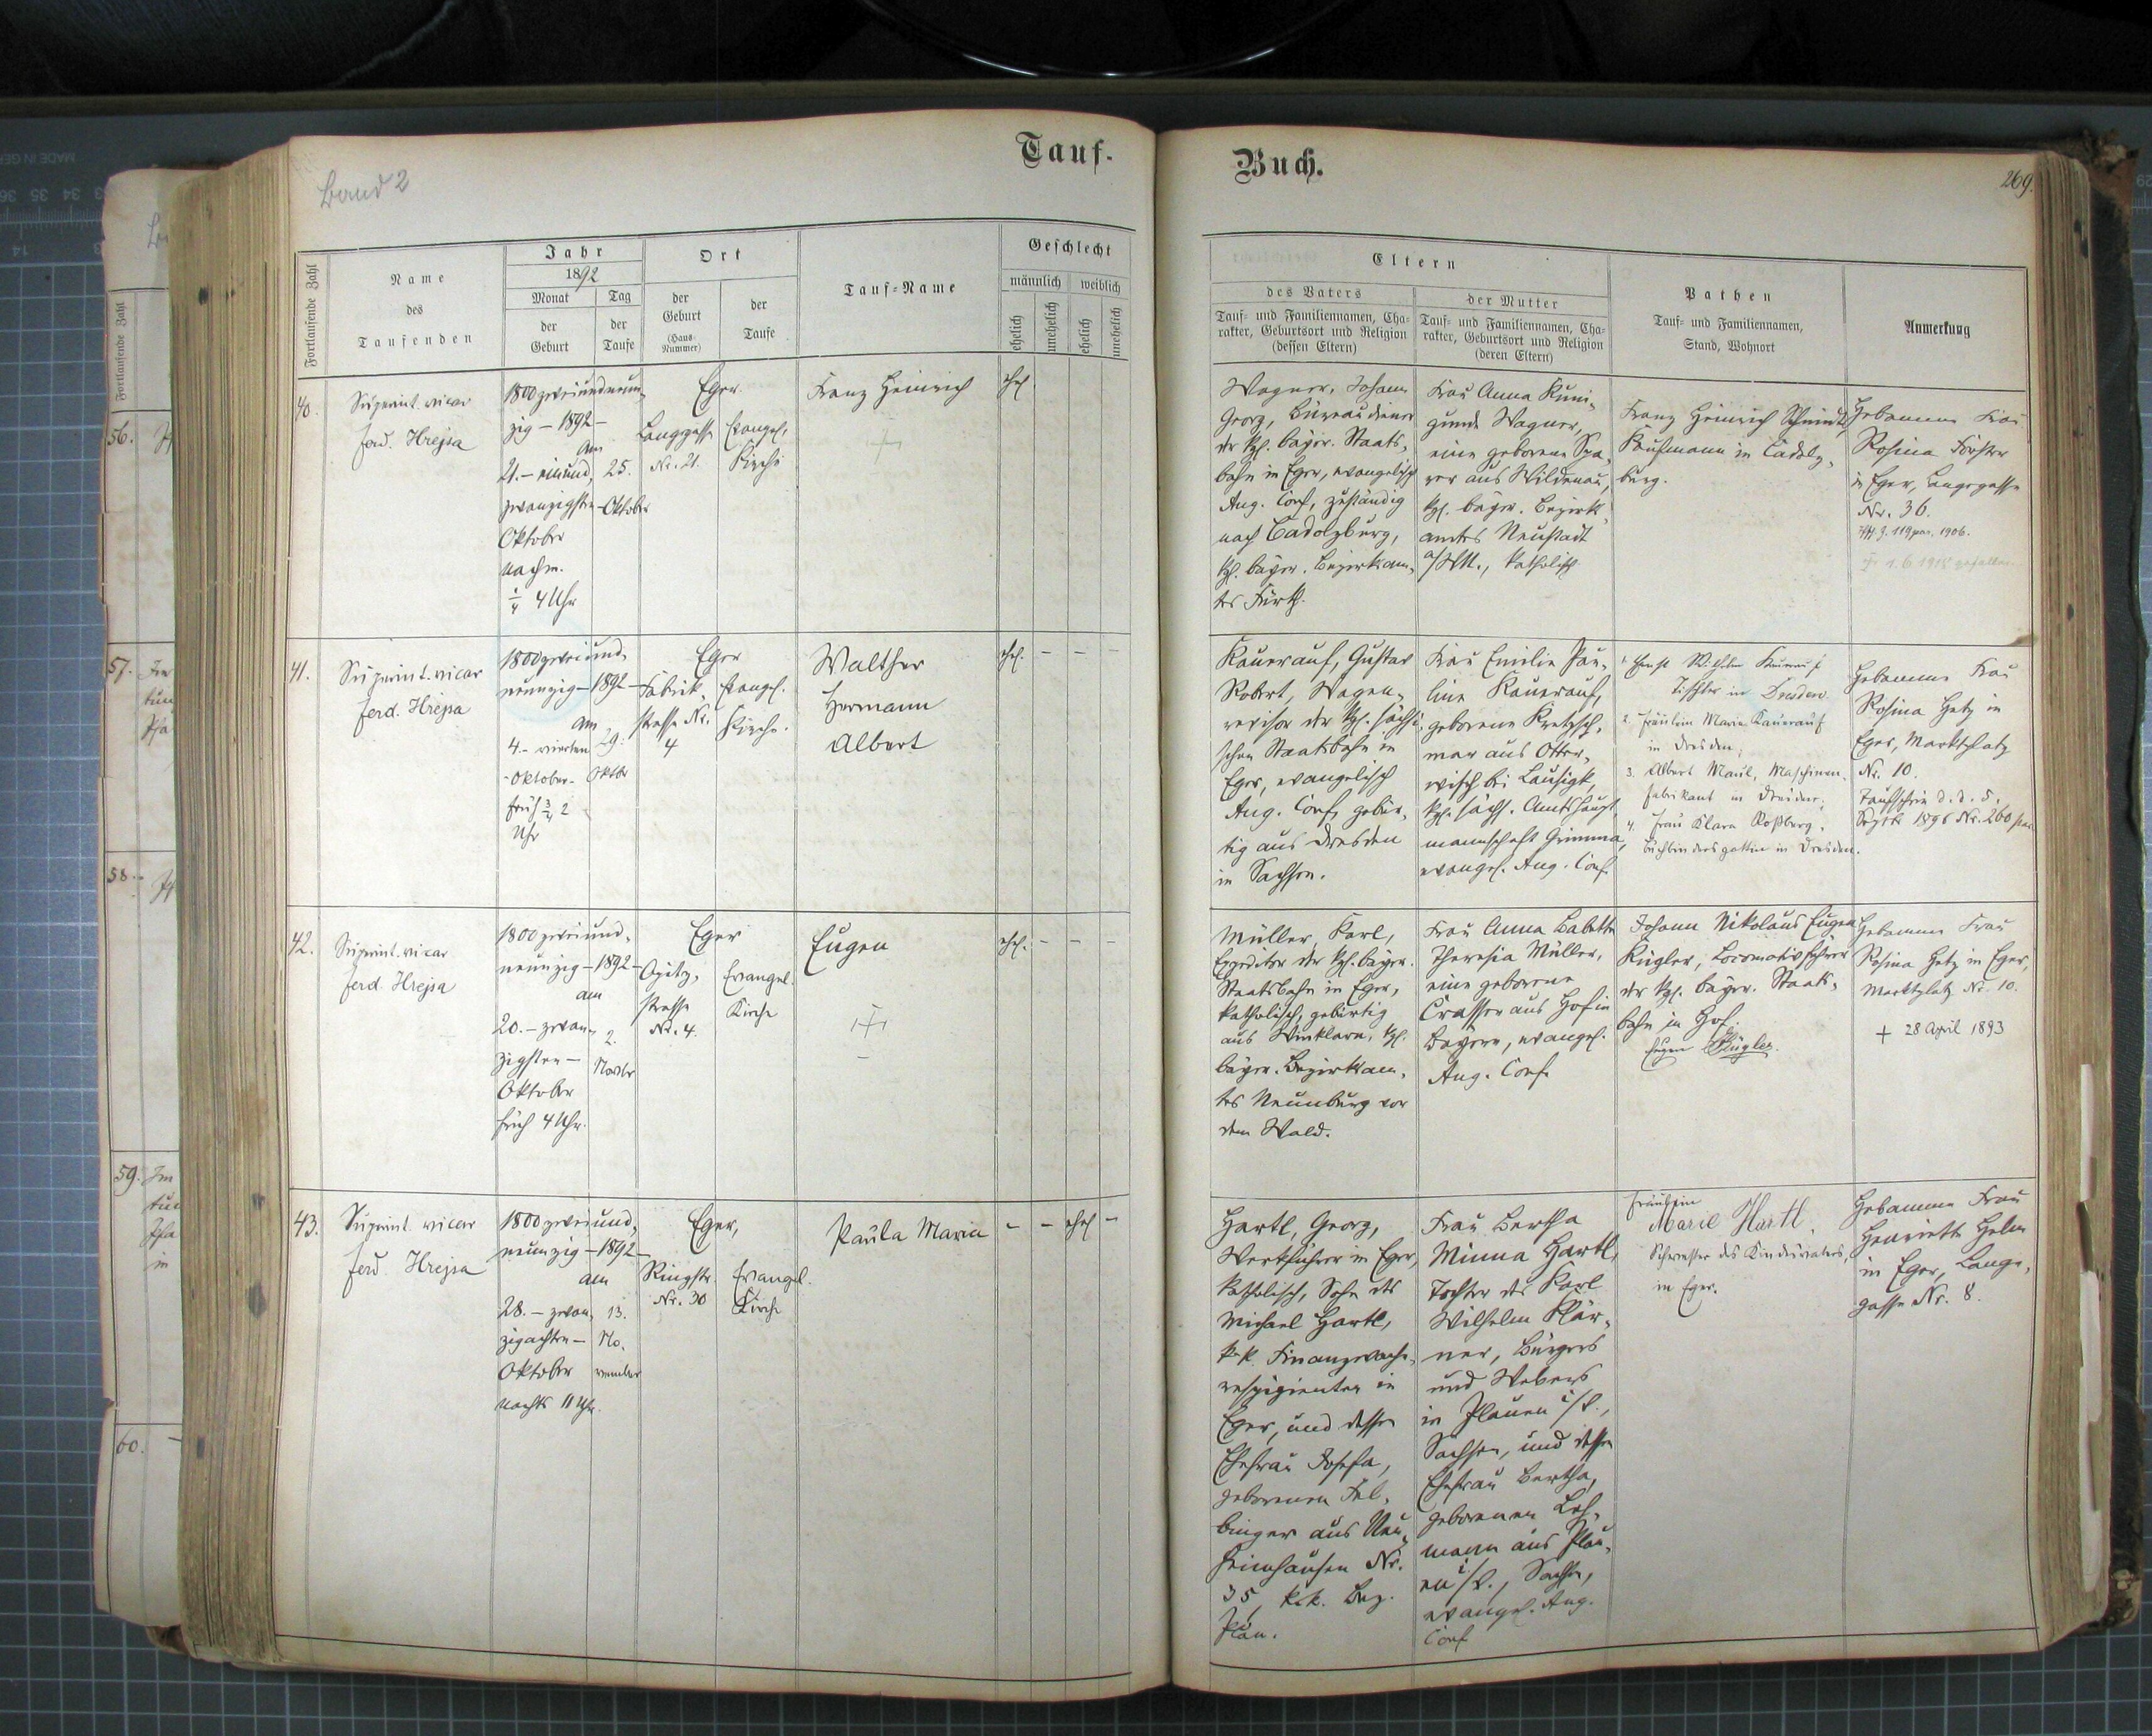 Band 2
Tauf-
Buch.
269.
Fortlaufende Zahl
Name
des
Taufenden
Jahr
1892
Monat
der
Geburt
Tag
der
Taufe
Ort
der
Geburt
(Haus-
Nummer)
der
Taufe
Tauf-Name
Geschlecht
männlich
weiblich
ehelich
unehelich
ehelich
unehelich
Eltern
des Vaters
Tauf- und Familiennamen, Cha-
rakter, Geburtsort und Religion
(dessen Eltern)
der Mutter
Tauf- und Familiennamen, Cha-
rakter, Geburtsort und Religion
(deren Eltern)
Pathen
Tauf- und Familiennamen,
Stand, Wohnort
Anmerkung
40.
Superint. vicar
ferd. Hrejsa
1800 zweiundneun-
zig – 1892 –
am
21. – einund-
zwanzigsten –
Oktober
nachm.
¼ 4 Uhr
25.
Oktober
Eger
Langgasse
Nr. 21.
Evangel.
Kirche
Franz Heinrich
ehel
Wagner, Johann
Georg, Bureaudiener
der kgl. bayer. Staats-
bahn in Eger, evangelisch
Aug. Conf, zuständig
nach Cadolzburg,
kgl. bayer. Bezirksam-
tes Fürth.
Frau Anna Kuni-
gunde Wagner,
eine geborene
aus Wildenau,
kgl. bayer. Bezirks-
amtes Neustadt
a/WN., katholisch
Franz Heinrich Schmidt,
Kaufmann in Cadolz-
burg.
Hebamme Frau
Rosina Förster
in Eger, Langegasse
Nr. 36.
119 1906.
1.6 1918 gefallen
41.
Superint. vicar
ferd. Hrejsa
1800 zweiund-
neunzig – 1892 –
am
4. – vierten
– Oktober –
früh ¾ 2
Uhr
29.
Oktbr
Eger
Fabrik-
strasse Nr.
4
Evangel.
Kirche.
Walther
Hermann
Albert
ehel. – – –
Kauerauf, Gustav
Robert, Wagen-
revisor der kgl. sächsi-
schen Staatsbahn in
Eger, evangelisch
Aug. Conf, gebür-
tig aus Dresden
in Sachsen.
Frau Emilie Pau-
line Kauerauf,
geborene Kretzsch-
mar aus Otter-
wisch bei Lausigk,
kgl. sächs. Amtshaupt-
mannschaft Grimma,
evangel. Aug. Conf.
1. Ernst Wilhelm Kauerauf
Tischler in Dresden
2. Fräulein Marie Kauerauf
in Dresden;
3. Albert Maul, Maschinen-
fabrikant in Dresden;
4. Frau Klara Roßberg,
Buchbindersgattin in Dresden.
Hebamme Frau
Rosina Hetz in
Eger, Marktplatz
Nr. 10.
Taufschein d. d. 5.
Septbr 1898 Nr. 260
42.
Superint. vicar
ferd. Hrejsa
1800 zweiund-
neunzig – 1892 –
am
20. – zwan-
zigsten –
Oktober
früh 4 Uhr.
2.
Novbr
Eger
Opitz-
strasse
Nr. 4.
Evangel.
Kirche
Eugen
ehel. – – –
Müller, Karl,
Expeditor der kgl. bayer.
Staatsbahn in Eger,
katholisch, gebürtig
aus Winklarn, kgl.
bayer. Bezirksam-
tes Neunburg vor
dem Wald.
Frau Anna Babette
Theresia Müller,
eine geborene
Crasser aus Hof in
Bayern, evangel.
Aug. Conf.
Johann Nikolaus Eugen
Kügler, Locomotivführer
der kgl. bayer. Staats-
bahn in Hof.
Eugen Kügler.
Hebamme Frau
Rosina Hetz in Eger,
Marktplatz Nr. 10.
+ 28 April 1893
43.
Superint. vicar
ferd. Hrejsa
1800 zweiund-
neunzig – 1892 –
am
28. – zwan-
zigachten –
Oktober
nachts 11 Uhr.
13.
No-
vember
Eger,
Ringstr.
Nr. 30
Evangel.
Kirche
Paula Maria
– – ehel –
Hartl, Georg,
Werkführer in Eger,
katholisch, Sohn des
Michael Hartl,
k.k. Finanzwach-
respizienten in
Eger, und dessen
Ehefrau Josefa,
geborenen Fel-
binger aus Neu-
Heimhausen Nr.
35, k.k. Bez.
Plan.
Frau Bertha
Minna Hartl,
Tochter des Karl
Wilhelm Klär-
ner, Bürgers
und Webers
in Plauen i/V.,
Sachsen, und dessen
Ehefrau Bertha,
geborenen Leh-
mann aus Plau-
en i/V., Sachsen,
evangel. Aug.
Conf
Fräulein
Marie Hartl,
Schwester des Kindesvaters,
in Eger.
Hebamme Frau
Henriette Helm
in Eger, Lange-
gasse Nr. 8.
56.
57.
58.
59.
60.